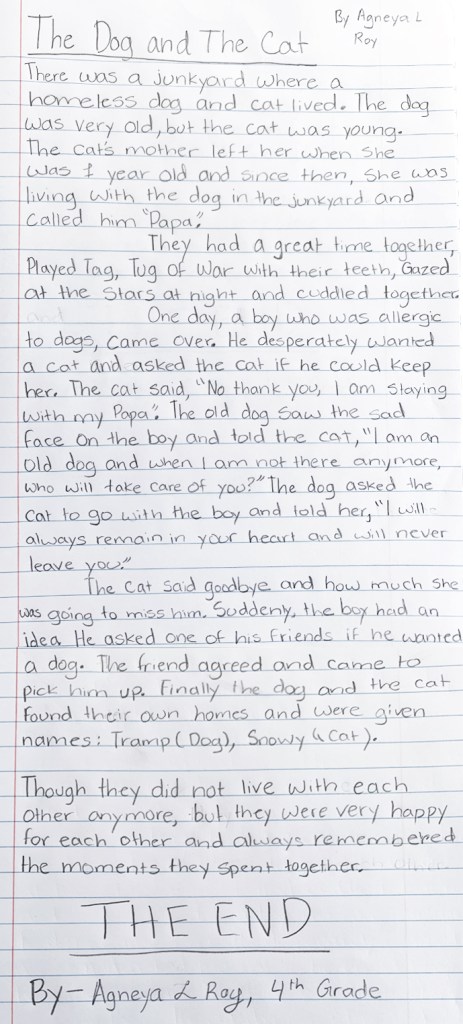 By Agneya L
Roy
The Dog and The Cat
There was a junkyard where a
homeless dog and cat lived. The dog
was very old, but the cat was young.
The cat's mother left her when she
was 1 year old and since then, she was
living with the dog in the junkyard and
called him "Papa".
They had a great time together,
Played Tag, Tug of War with their teeth, Gazed
at the Stars at night and cuddled together.
One day, a boy who was allergic
to dogs, came over. He desperately wanted
a cat and asked the cat if he could keep
her. The cat said, "No thank you, I am staying
with my Papa". The old dog saw the sad
face on the boy and told the cat, "I am an
old dog and when I am not there anymore,
who will take care of you?" The dog asked the
cat to go with the boy and told her, "I will
always remain in your heart and will never
leave you."
The cat said goodbye and how much she
was going to miss him. Suddenly, the boy had an
idea. He asked one of his friends if he wanted
a dog. The friend agreed and came to
pick him up. Finally the dog and the cat
found their own homes and were given
names: Tramp (Dog), Snowy (Cat).
Though they did not live with each
other anymore, but they were very happy
for each other and always remembered
the moments they spent together.
THE END
By - Agneya L Roy, 4th Grade